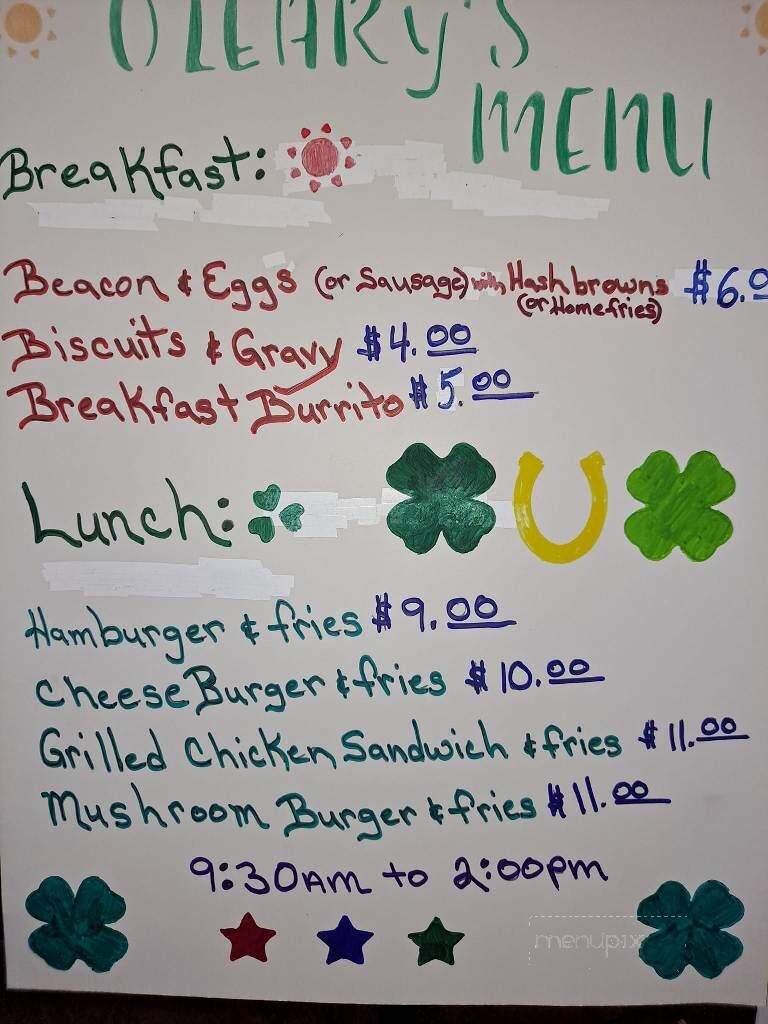 O'LEARY'S
MENU
Breakfast:
Beacon & Eggs (or Sausage) with Hashbrowns $6.0
(or Homefries)
Biscuits & Gravy $4.00
Breakfast Burrito $5.00
Lunch:
Hamburger & fries $9.00
Cheese Burger & fries $10.00
Grilled Chicken Sandwich & fries $11.00
Mushroom Burger & fries $11.00
9:30AM to 2:00pm
menupix